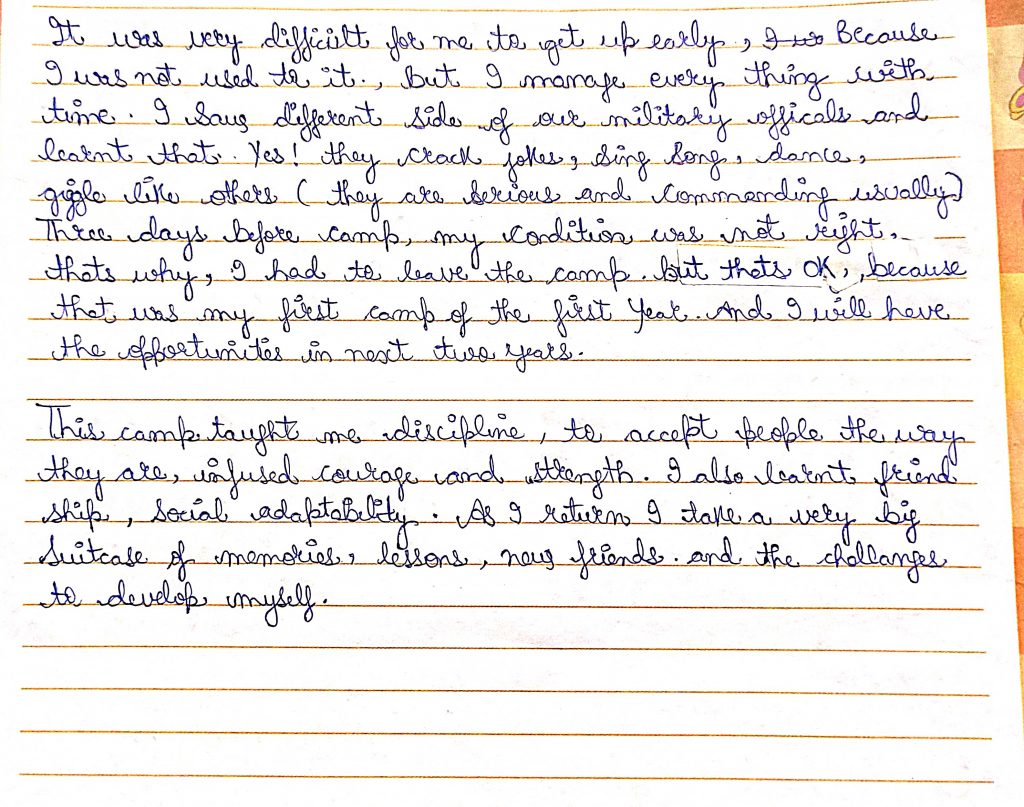 It was very difficult for me to get up early, I was Because
I was not used to it., But I manage every thing with
time. I Saw different side of our military officals and
learnt that. Yes! they crack jokes, Sing Song, dance,
giggle like others (they are serious and commanding usually)
Three days before camp, my condition was not right,
thats why, I had to leave the camp. but thats OK, because
that was my first camp of the first Year. And I will have
the opportunites in next two years.
This camp taught me discipline, to accept people the way
they are, infused courage and strength. I also learnt friend
ship, Social adaptability. As I return I take a very big
Suitcase of memories, lessons, new friends. and the challanges
to develop myself.